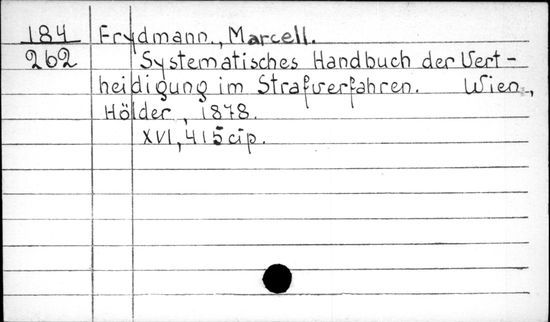 184 Frydmann, Marcell.
262 Systematisches Handbuch der Vert-
heidigung im Strafverfahren. Wien,
Hölder, 1878.
XVI, 415 cip.